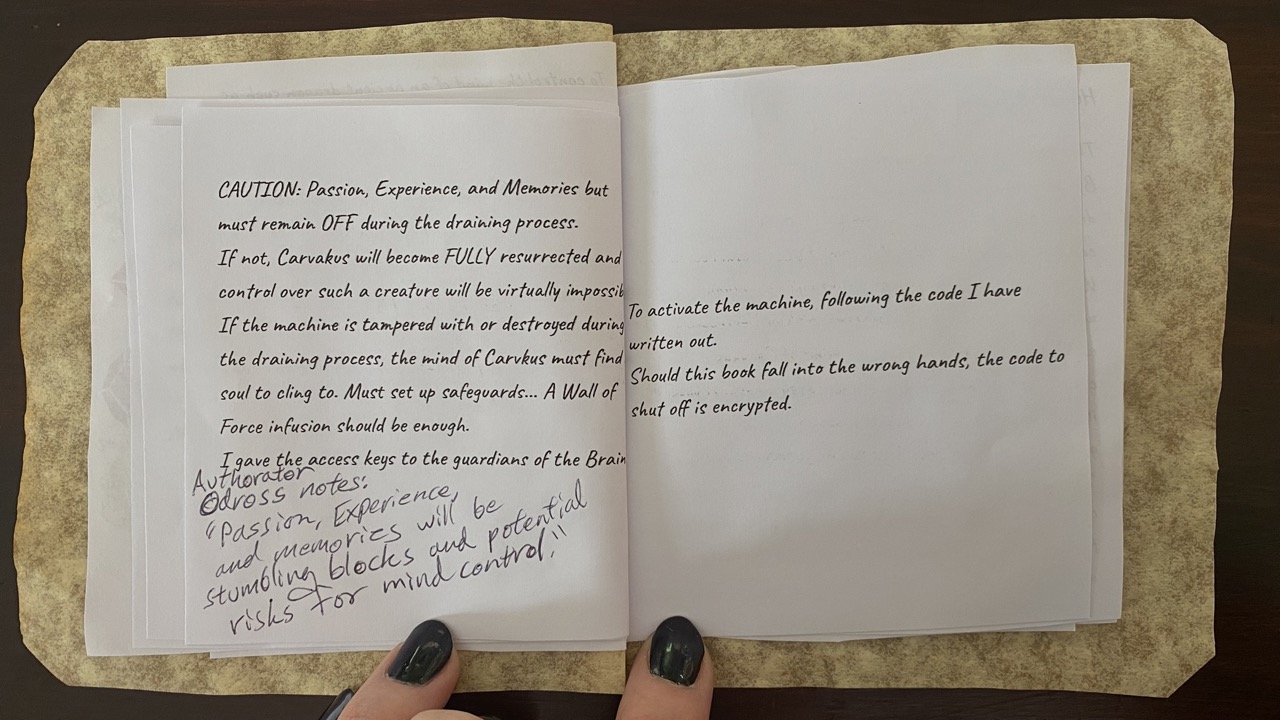 CAUTION: Passion, Experience, and Memories but
must remain OFF during the draining process.
If not, Carvakus will become FULLY resurrected and
control over such a creature will be virtually impossib
If the machine is tampered with or destroyed during
the draining process, the mind of Carvkus must find
soul to cling to. Must set up safeguards... A Wall of
Force infusion should be enough.
I gave the access keys to the guardians of the Brain
Authorator
Odross notes:
"Passion, Experience,
and memories will be
stumbling blocks and potential
risks for mind control."
To activate the machine, following the code I have
written out.
Should this book fall into the wrong hands, the code to
shut off is encrypted.